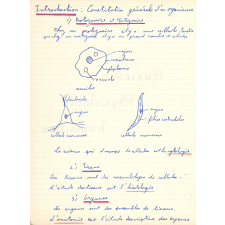 Introduction: Constitution générale d'un organisme
1) Protozoaires et Métazoaires
Chez un protozoaire il y a une cellule, tandis
que chez un métazoaire il y a un grand nombre de cellules
noyau
membrane
cytoplasme
vacuole
noyau
noyau
cellule nerveuse
cellule musculaire
La science qui s'occupe de cellules est la cytologie
2) Tissus
Les tissus sont des assemblages de cellules.
L'étude des tissus est l'histologie
3) Organes
Les organes sont des ensembles de tissus.
L'anatomie est l'étude descriptive des organes